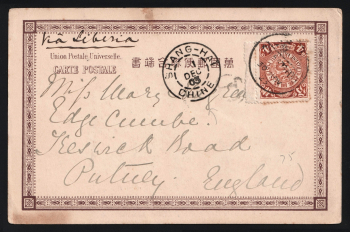 via Siberia
Union Postale Universelle.
CARTE POSTALE
SHANG-HAI
DEC
05
CHINE
Miss Mary
Edgcumbe.
Keswick Road
Putney.
England